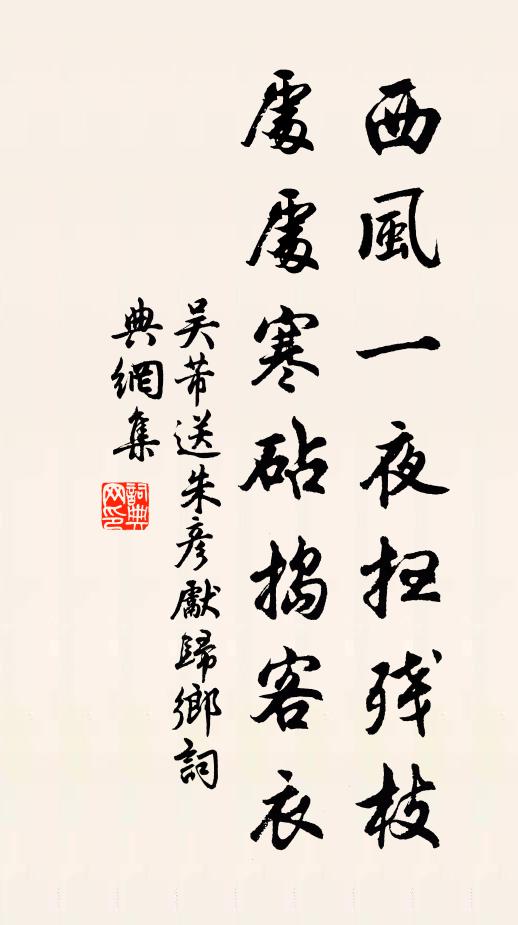 西風一夜扫残枝
處處寒砧搗客衣
吴芾送朱彦獻歸鄉詞
典網集
詞典
网印